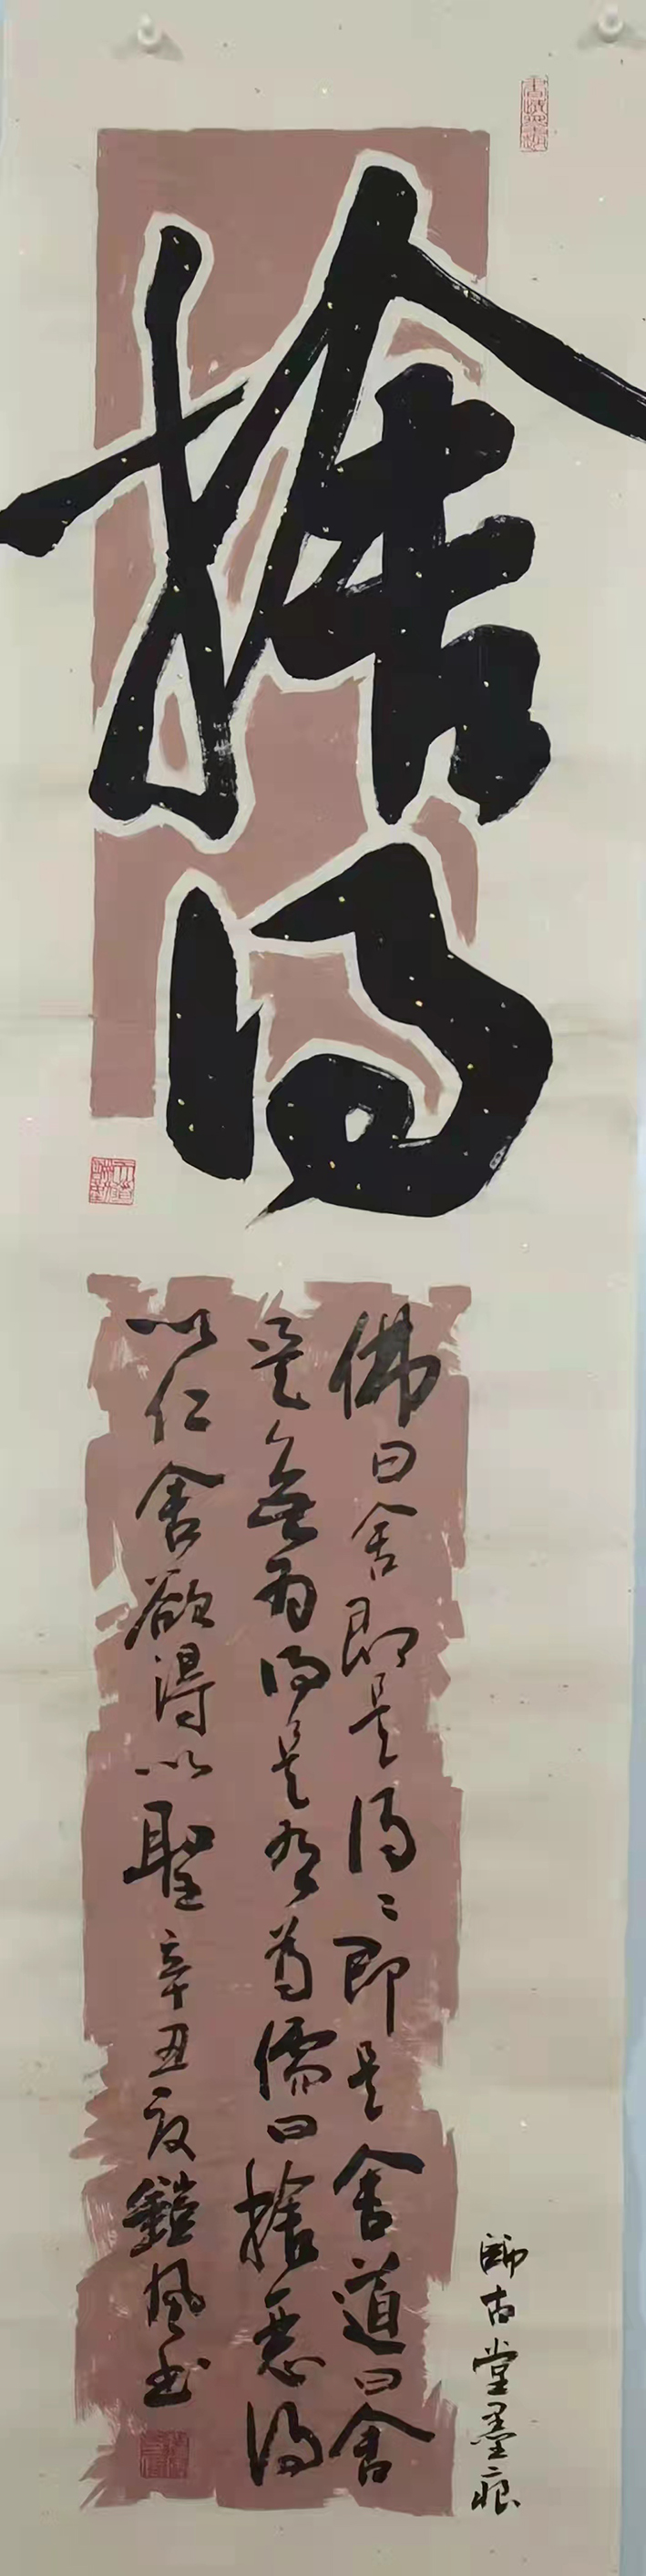 捨得
佛曰舍即是得〻即是舍道曰舍
是無为得是有為儒曰捨惡得
以仁舍欲得以聖辛丑鎧風书
師古堂墨痕